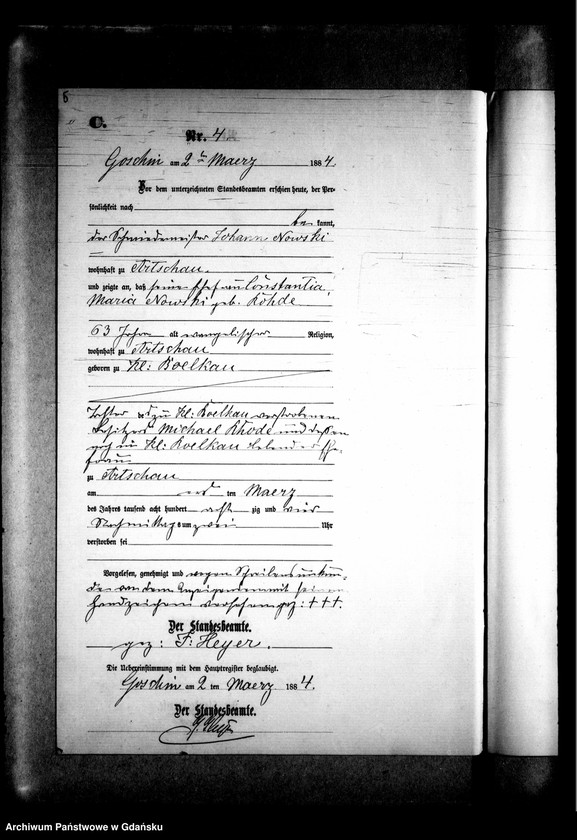 8
C.
Nr. 4
Goschin am 2ten Maerz 1884.
Vor dem unterzeichneten Standesbeamten erschien heute, der Per-
sönlichkeit nach
be kannt,
der Schmiedemeister Johann Nowski
wohnhaft zu Artschau,
und zeigte an, daß seine Ehefrau Constantia
Maria Nowski geb. Rohde
63 Jahre alt evangelischer Religion,
wohnhaft zu Artschau
geboren zu Kl: Boelkau
Tochter des zu Kl: Boelkau verstorbenen
Besitzers Michael Rhode und dessen
noch in Kl: Boelkau lebender Ehe-
frau
zu Artschau
am ten Maerz
des Jahres tausend acht hundert acht zig und vier
Nachmittags um zwei Uhr
verstorben sei
Vorgelesen, genehmigt und wegen Schreibensunkun-
de von dem Anzeigenden mit seinen
Handzeichen versehen gez: +++.
Der Standesbeamte.
gez: F: Heyer.
Die Uebereinstimmung mit dem Hauptregister beglaubigt.
Goschin am 2 ten Maerz 1884.
Der Standesbeamte.
Archiwum Państwowe w Gdańsku